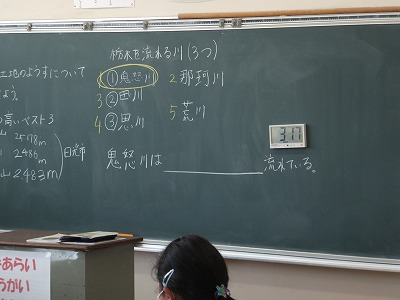 栃木を流れる川(3つ)
①鬼怒川 2那珂川
3②西川
4③思川 5荒川
土地のようすについて
よう。
の高いベスト3
山 2578m
2486m
山 2483m
日光市
鬼怒川は 流れている。
3:17
あらい
うがい